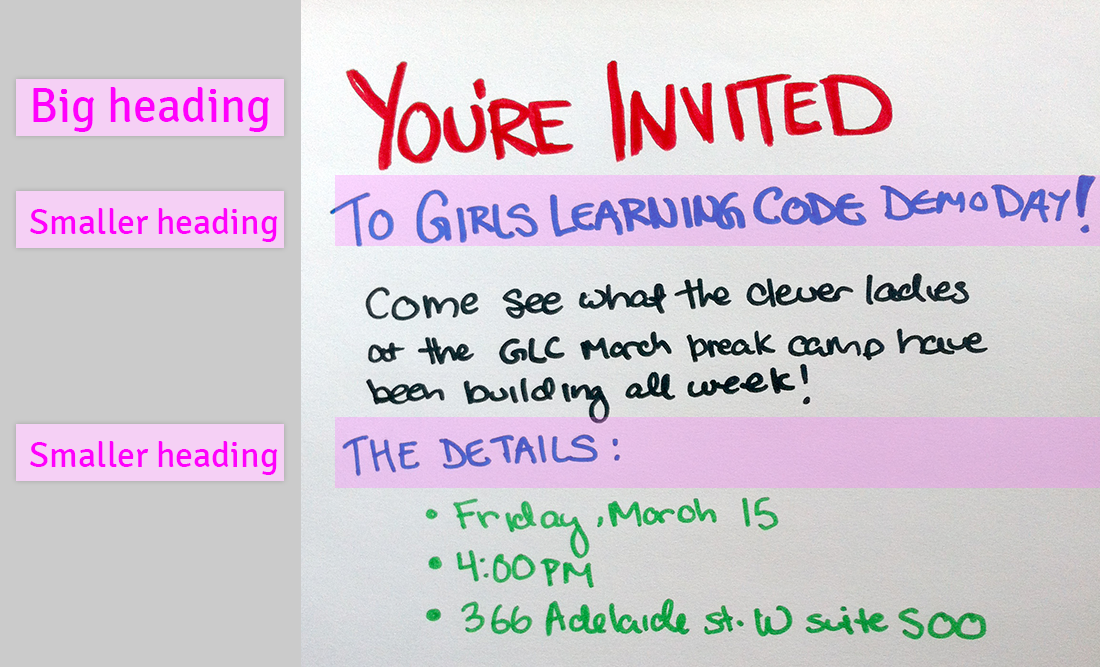 Big heading
YOU'RE INVITED
Smaller heading
TO GIRLS LEARNING CODE DEMO DAY!
Come see what the clever ladies
at the GLC March break camp have
been building all week!
Smaller heading
THE DETAILS:
• Friday, March 15
• 4:00 PM
• 366 Adelaide st. W suite 500